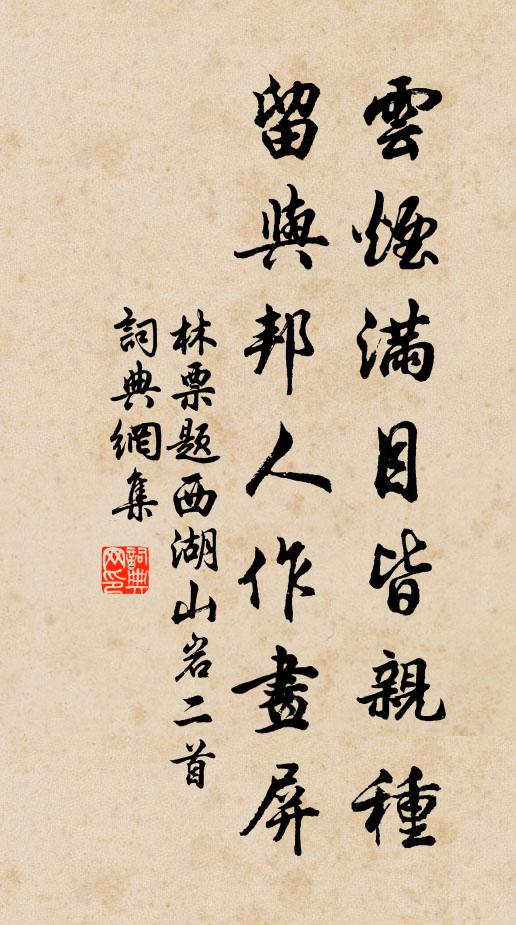 雲煙滿目皆親種
留與邦人作畫屏
林票题西湖山岩二首
詞典網集
詞典網印